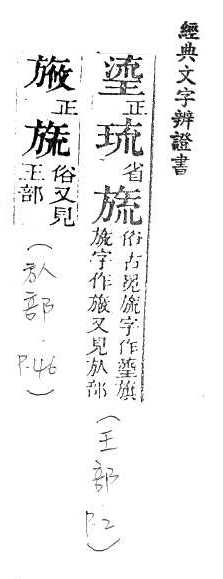 經典文字辨證書
瑬正琉省旒俗古冕旒字作瑬旗
旒字作又見㫃部
(王部 P.2)
正旒俗又見
王部
(㫃部 P.46)